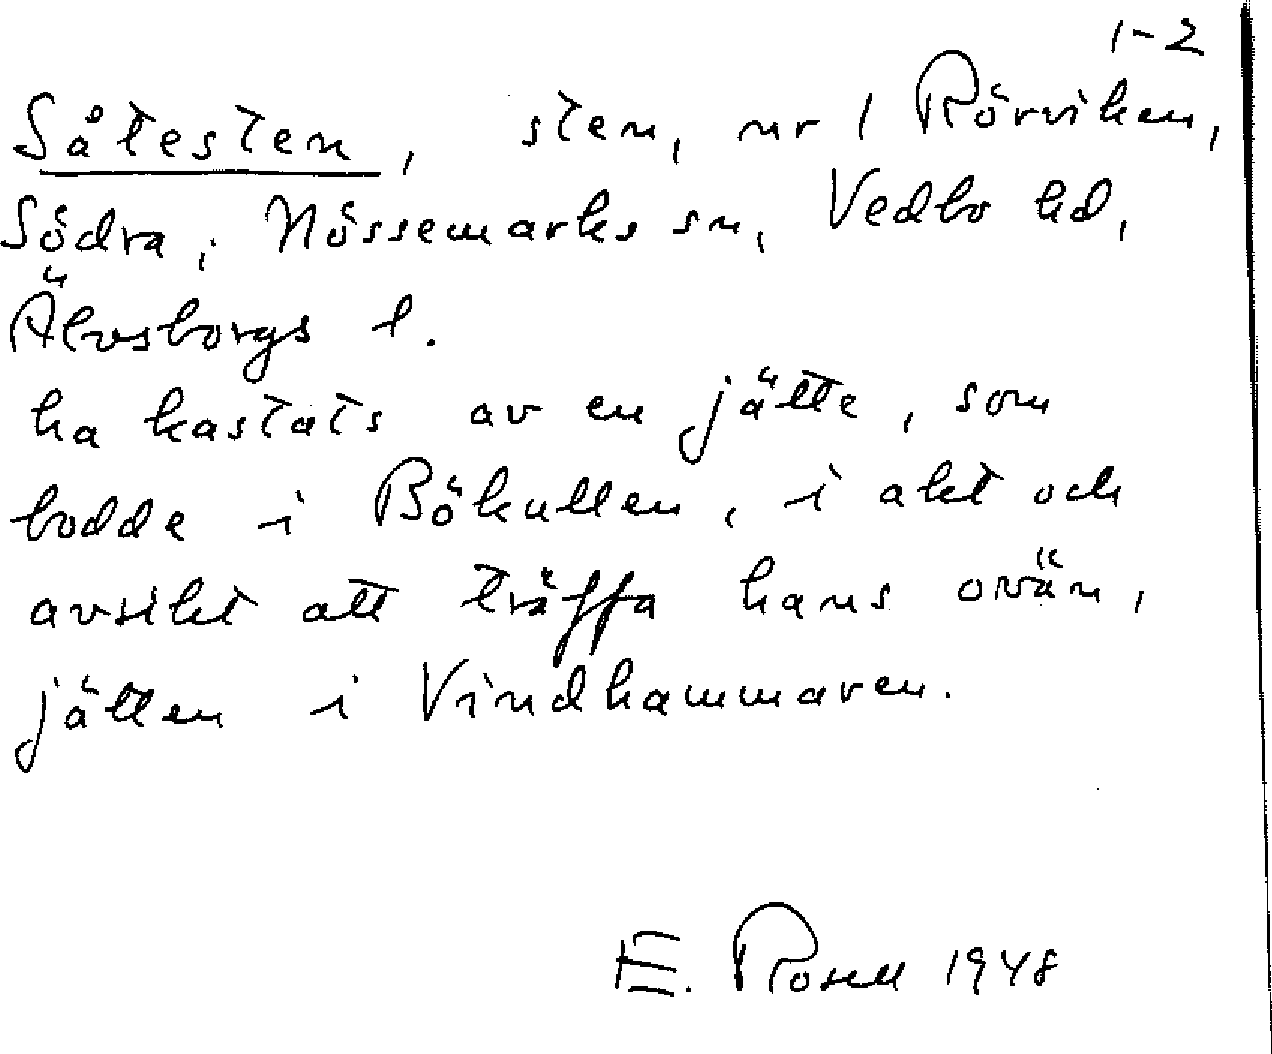 1-2
Såtesten, sten, nr 1 Rörviken,
Södra, Nössemarks sn, Vedbo hd,
Älvsborgs l.
ha kastats av en jätte, som
bodde i Bökullen, i akt och
avsikt att träffa hans ovän,
jätten i Vindhammaren.
E. Rosell 1948